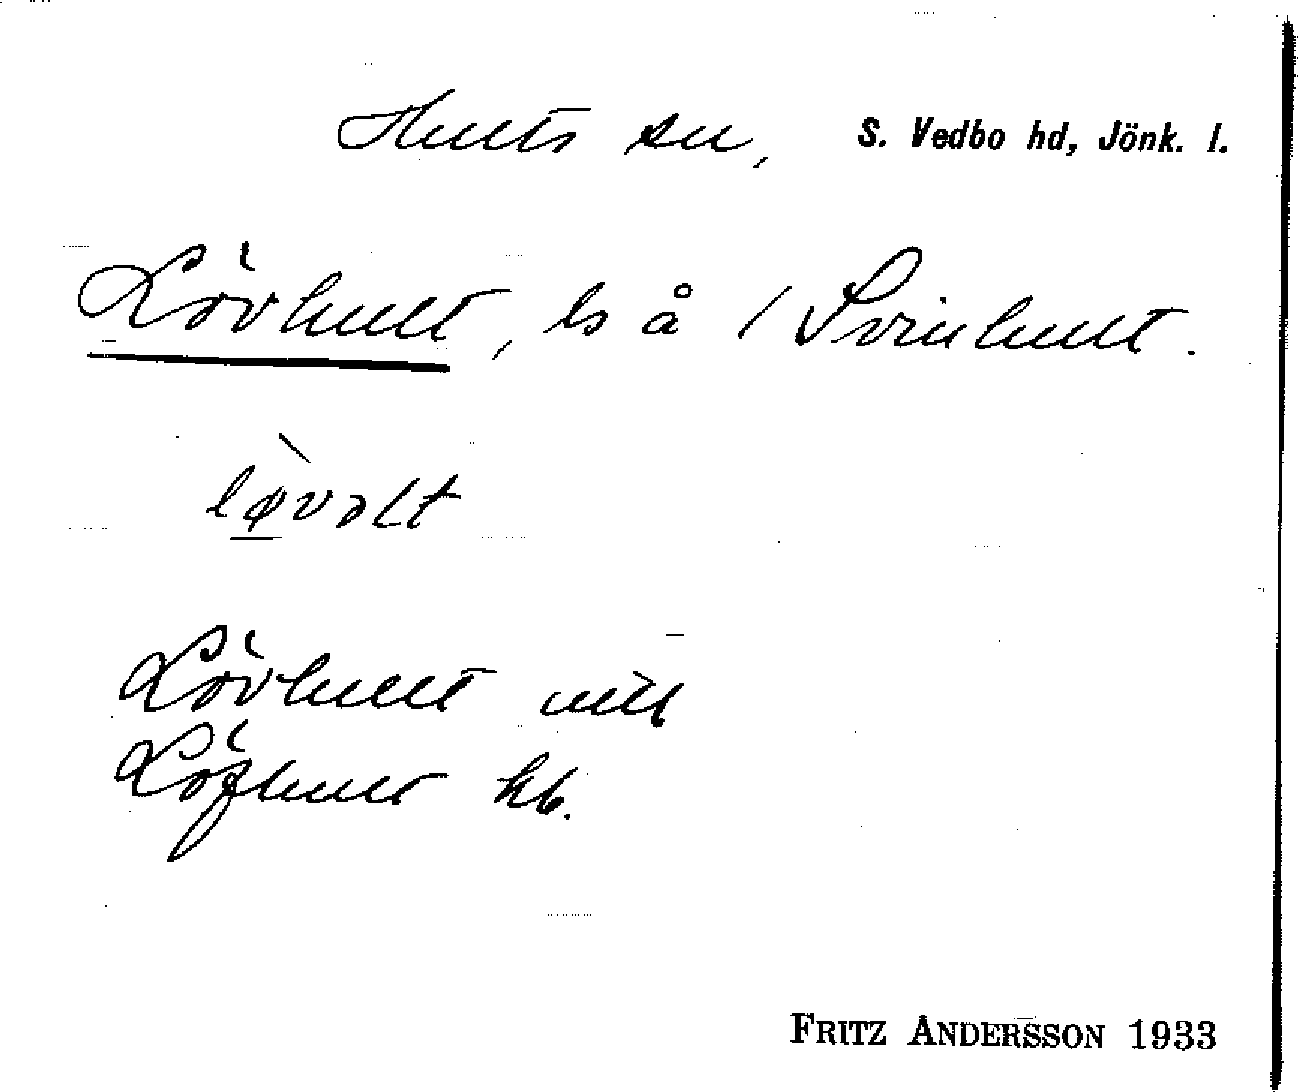 Hults sn, S. Vedbo hd, Jönk. l.
Lövhult, ls å / Svinhult.
lø̀vəlt
Lövhult uttl
Löfhult kb.
FRITZ ANDERSSON 1933